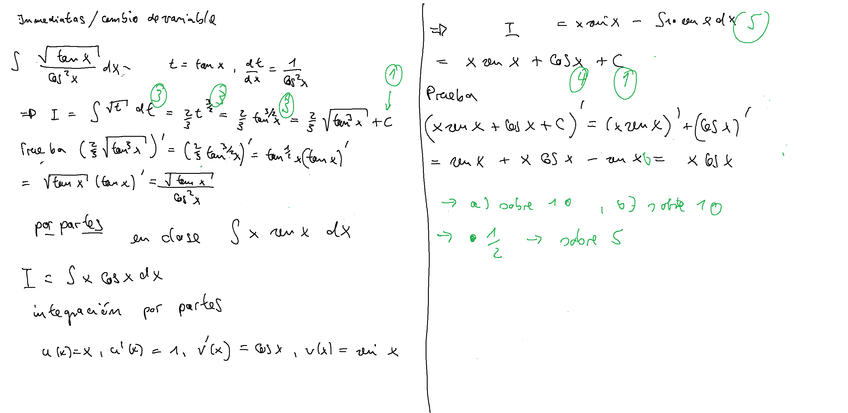 Inmediatas / cambio de variable
∫ √(tan x) / cos²x dx t = tan x, dt/dx = 1/cos²x
⇒ I = ∫ √t dt ③ = 2/3 t^(3/2) ③ = 2/3 tan^(3/2) x ③ = 2/3 √(tan³x) + C ①
Prueba (2/3 √(tan³x))' = (2/3 tan^(3/2) x)' = tan^(1/2) x (tan x)'
= √(tan x) (tan x)' = √(tan x) / cos²x
por partes en clase ∫ x sen x dx
I = ∫ x cos x dx
integración por partes
u(x) = x, u'(x) = 1, v'(x) = cos x, v(x) = sen x
⇒ I = x sin x − ∫ 1·sen x dx ⑤
= x sen x + cos x + C ④ ①
Prueba
(x sen x + cos x + C)' = (x sen x)' + (cos x)'
= sen x + x cos x − sen x = x cos x
→ a) sobre 10, b) sobre 10
→ • 1/2 → sobre 5